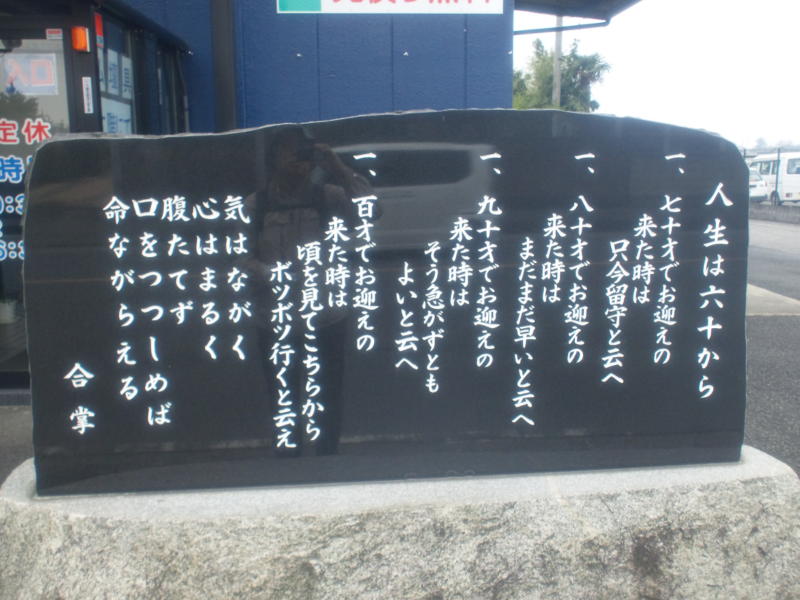 人生は六十から
一、七十才でお迎えの
来た時は
只今留守と云へ
一、八十才でお迎えの
来た時は
まだまだ早いと云へ
一、九十才でお迎えの
来た時は
そう急がずとも
よいと云へ
一、百才でお迎えの
来た時は
頃を見てこちらから
ボツボツ行くと云え
気はながく
心はまるく
腹たてず
口をつつしめば
命ながらえる
合掌
入口
定休